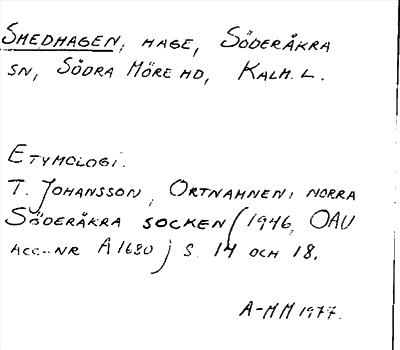 SMEDHAGEN, HAGE, SÖDERÅKRA
SN, SÖDRA MÖRE HD, KALM. L.
ETYMOLOGI.
T. JOHANSSON, ORTNAMNEN I NORRA
SÖDERÅKRA SOCKEN (1946, OAU
ACC.-NR A1680) S. 14 OCH 18.
A-MM 1977.